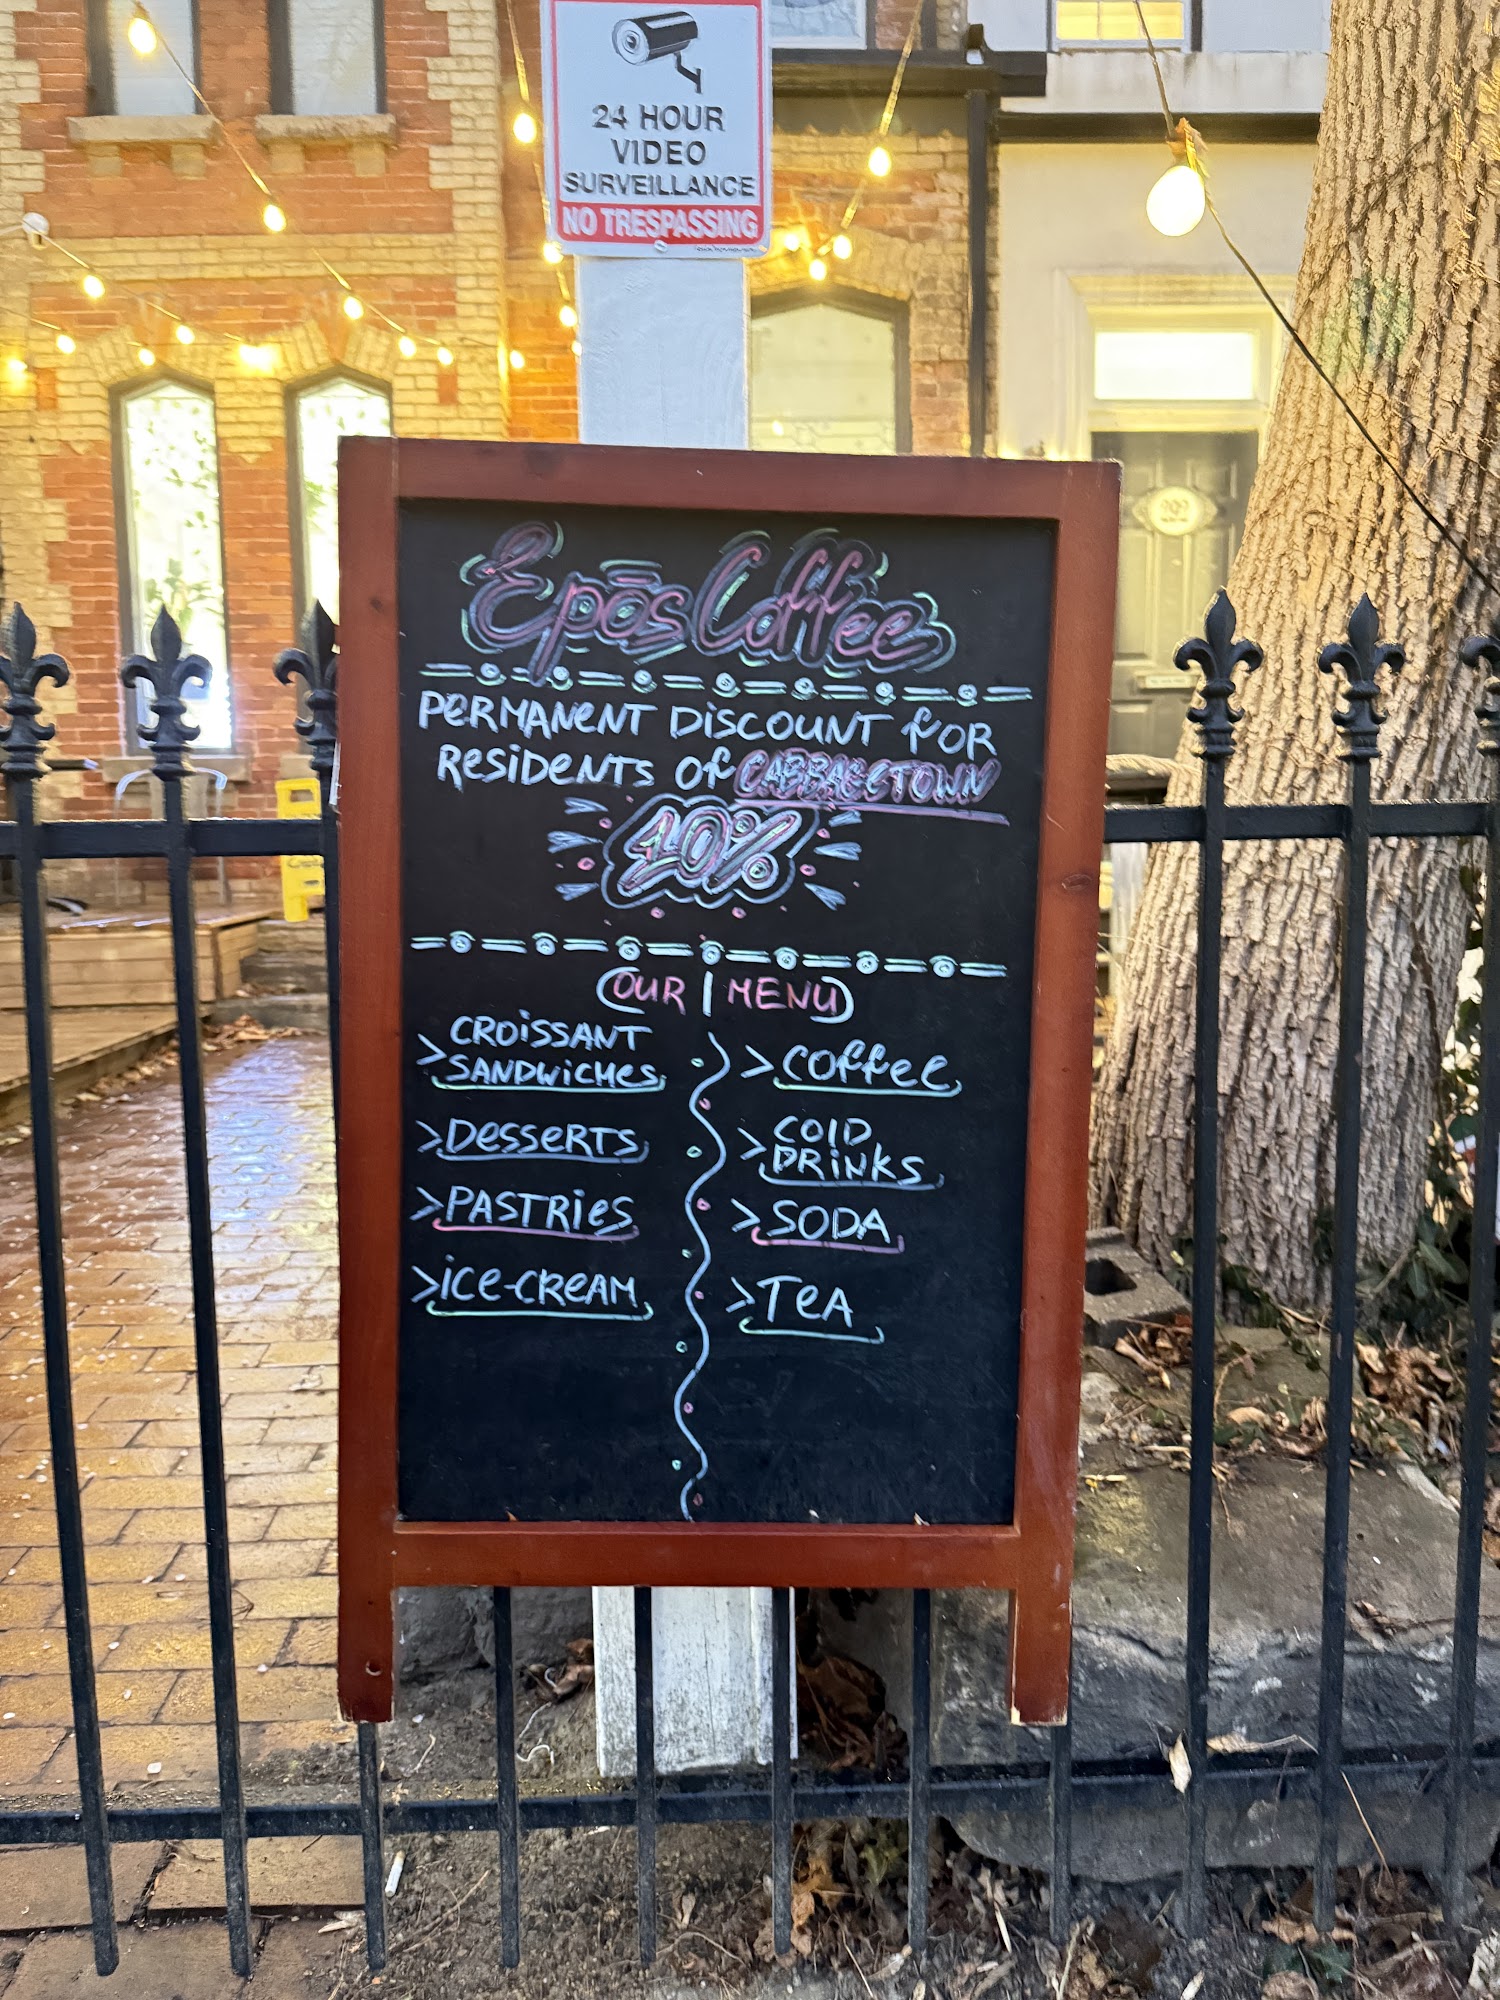 24 HOUR
VIDEO
SURVEILLANCE
NO TRESPASSING
Epōs Coffee
PERMANENT DISCOUNT FOR
RESIDENTS OF CABBAGETOWN
10%
OUR | MENU
> CROISSANT
SANDWICHES
> DESSERTS
> PASTRIES
> ICE-CREAM
> COFFEE
> COLD
DRINKS
> SODA
> TEA